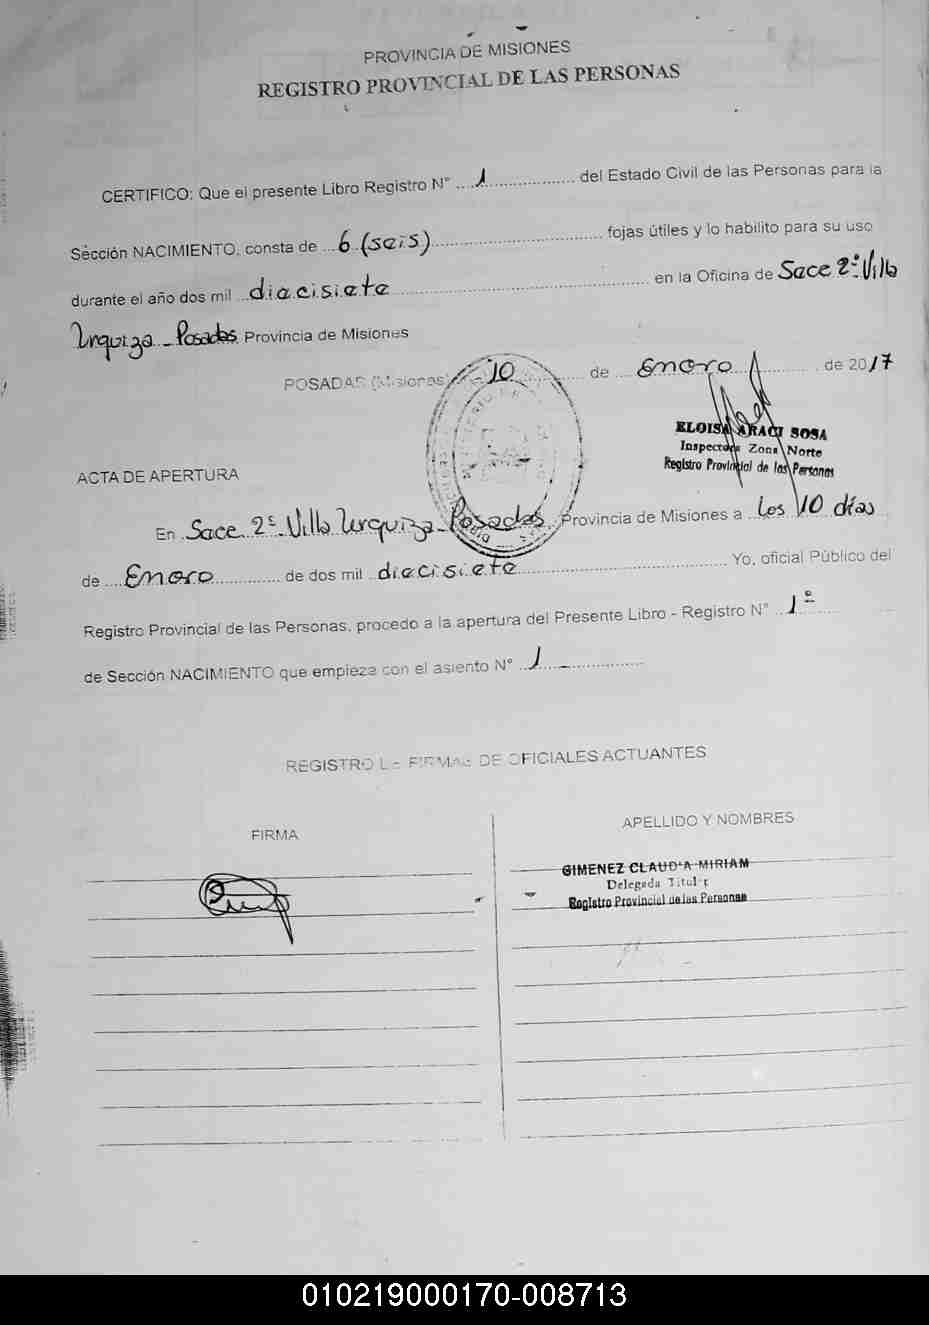 PROVINCIA DE MISIONES
REGISTRO PROVINCIAL DE LAS PERSONAS
CERTIFICO: Que el presente Libro Registro N° 1 del Estado Civil de las Personas para la
Sección NACIMIENTO, consta de 6 (seis) fojas útiles y lo habilito para su uso
durante el año dos mil diecisiete en la Oficina de Sacc 2° Villa
Urquiza - Posadas Provincia de Misiones
POSADAS (Misiones) 10 de Enero de 2017
ELOISA ARACI SOSA
Inspectora Zona Norte
Registro Provincial de las Personas
ACTA DE APERTURA
En Sacc 2° Villa Urquiza - Posadas, Provincia de Misiones a los 10 días
de Enero de dos mil diecisiete Yo, oficial Público del
Registro Provincial de las Personas, procedo a la apertura del Presente Libro - Registro N° 1°
de Sección NACIMIENTO que empieza con el asiento N° 1
REGISTRO DE FIRMAS DE OFICIALES ACTUANTES
FIRMA
APELLIDO Y NOMBRES
GIMENEZ CLAUDIA MIRIAM
Delegada Titular
Registro Provincial de las Personas
010219000170-008713